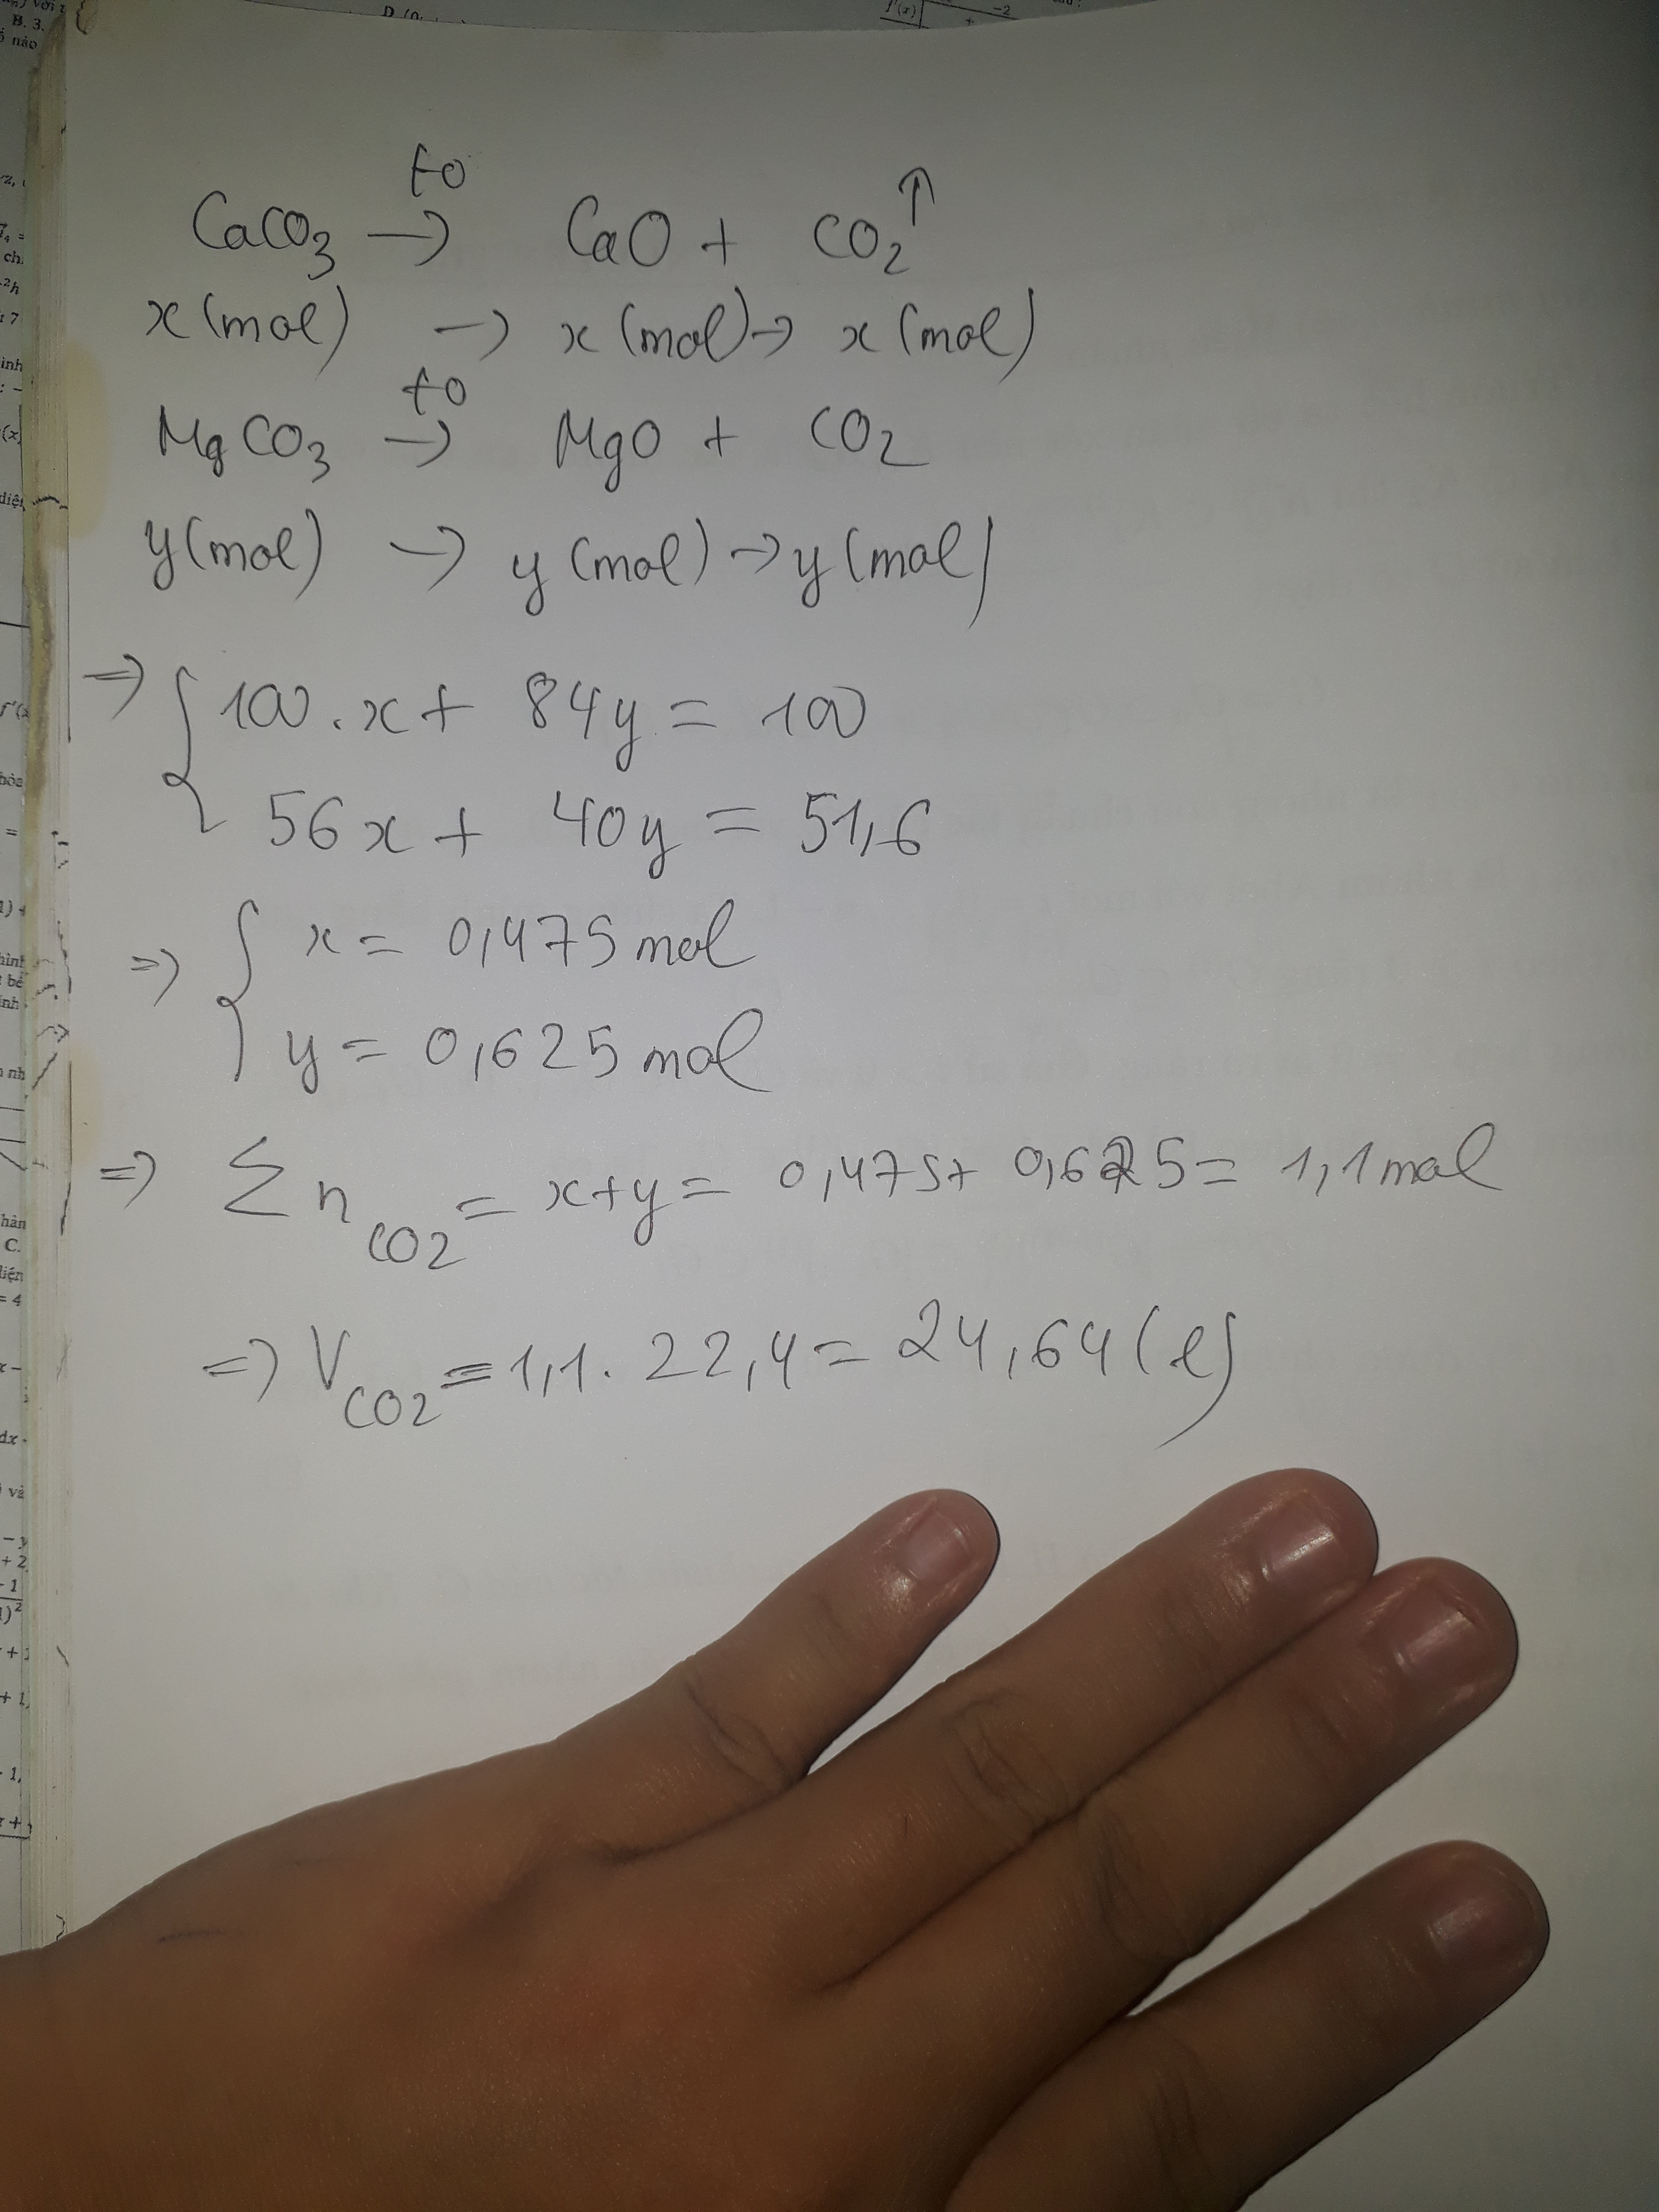 to
CaCO3 → CaO + CO2↑
x(mol) → x(mol)→ x(mol)
to
MgCO3 → MgO + CO2
y(mol) → y(mol)→y(mol)
⇒ { 100.x + 84y = 100
56x + 40y = 51,6
⇒ { x = 0,475mol
y = 0,625mol
⇒ Σ n CO2 = x+y = 0,475+ 0,625 = 1,1mol
⇒ V CO2 = 1,1. 22,4 = 24,64(l)